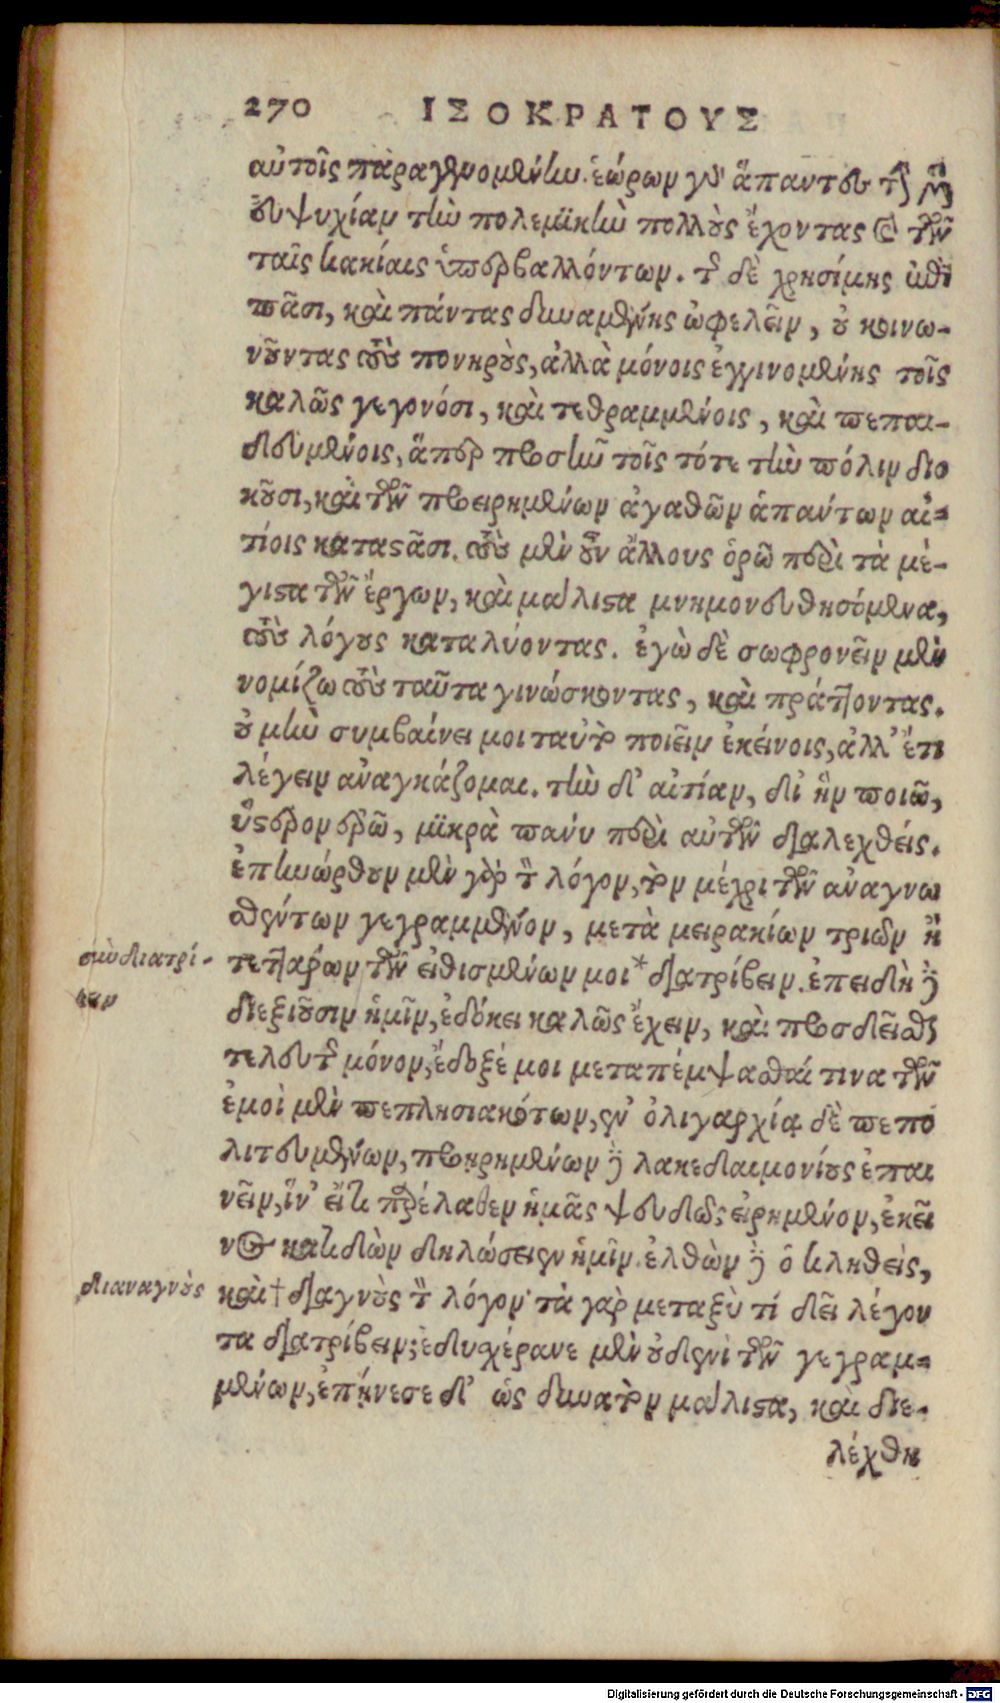 270 ΙΣΟΚΡΑΤΟΥΣ
αὐτοῖς παραγενομένην. ἑώρων γὰρ ἅπαντες τὴν μὲν
εὐψυχίαν τὴν πολεμικὴν πολλοὺς ἔχοντας καὶ τῶν
ταῖς κακίαις ὑπερβαλλόντων. τῆς δὲ χρησίμης ἐπὶ
πᾶσι, καὶ πάντας δυναμένης ὠφελεῖν, οὐ κοινω-
νοῦντας τοὺς πονηροὺς, ἀλλὰ μόνοις ἐγγινομένης τοῖς
καλῶς γεγονόσι, καὶ τεθραμμένοις, καὶ πεπαι-
δευμένοις, ἅπερ προσῆν τοῖς τότε τὴν πόλιν διοι
κοῦσι, καὶ τῶν προειρημένων ἀγαθῶν ἁπάντων αἰ-
τίοις καταστᾶσι. τοὺς μὲν οὖν ἄλλους ὁρῶ περὶ τὰ μέ-
γιστα τῶν ἔργων, καὶ μάλιστα μνημονευθησόμενα,
τοὺς λόγους καταλύοντας. ἐγὼ δὲ σωφρονεῖν μὲν
νομίζω τοὺς ταῦτα γινώσκοντας, καὶ πράττοντας.
οὐ μὴν συμβαίνει μοι ταὐτὸ ποιεῖν ἐκείνοις, ἀλλ' ἔτι
λέγειν ἀναγκάζομαι. τὴν δ' αἰτίαν, δι' ἣν ποιῶ,
ὕστερον ἐρῶ, μικρὰ πάνυ περὶ αὐτῶν διαλεχθείς.
ἐπηνώρθουν μὲν γὰρ τὸν λόγον, τὸν μέχρι τῶν ἀναγνω
σθέντων γεγραμμένον, μετὰ μειρακίων τριῶν ἢ
συνδιατρί-
βειν
τεττάρων τῶν εἰθισμένων μοι* διατρίβειν. ἐπειδὴ δὲ
διεξιοῦσιν ἡμῖν, ἐδόκει καλῶς ἔχειν, καὶ προσδεῖσθαι
τελευτῆς μόνον, ἔδοξέ μοι μεταπέμψασθαί τινα τῶν
ἐμοὶ μὲν πεπλησιακότων, ἐν ὀλιγαρχίᾳ δὲ πεπο
λιτευμένων, προῃρημένων δὲ λακεδαιμονίους ἐπαι
νεῖν, ἵν' εἴ τι παρέλαθεν ἡμᾶς ψευδῶς εἰρημένον, ἐκεῖ
νος κατιδὼν δηλώσειεν ἡμῖν. ἐλθὼν δὲ ὁ κληθεὶς,
διαναγνοὺς
καὶ† διαγνοὺς τὸν λόγον· τὰ γὰρ μεταξὺ τί δεῖ λέγον
τα διατρίβειν; ἐδυσχέρανε μὲν οὐδενὶ τῶν γεγραμ-
μένων, ἐπῄνεσε δ' ὡς δυνατὸν μάλιστα, καὶ διε-
λέχθη
Digitalisierung gefördert durch die Deutsche Forschungsgemeinschaft - DFG